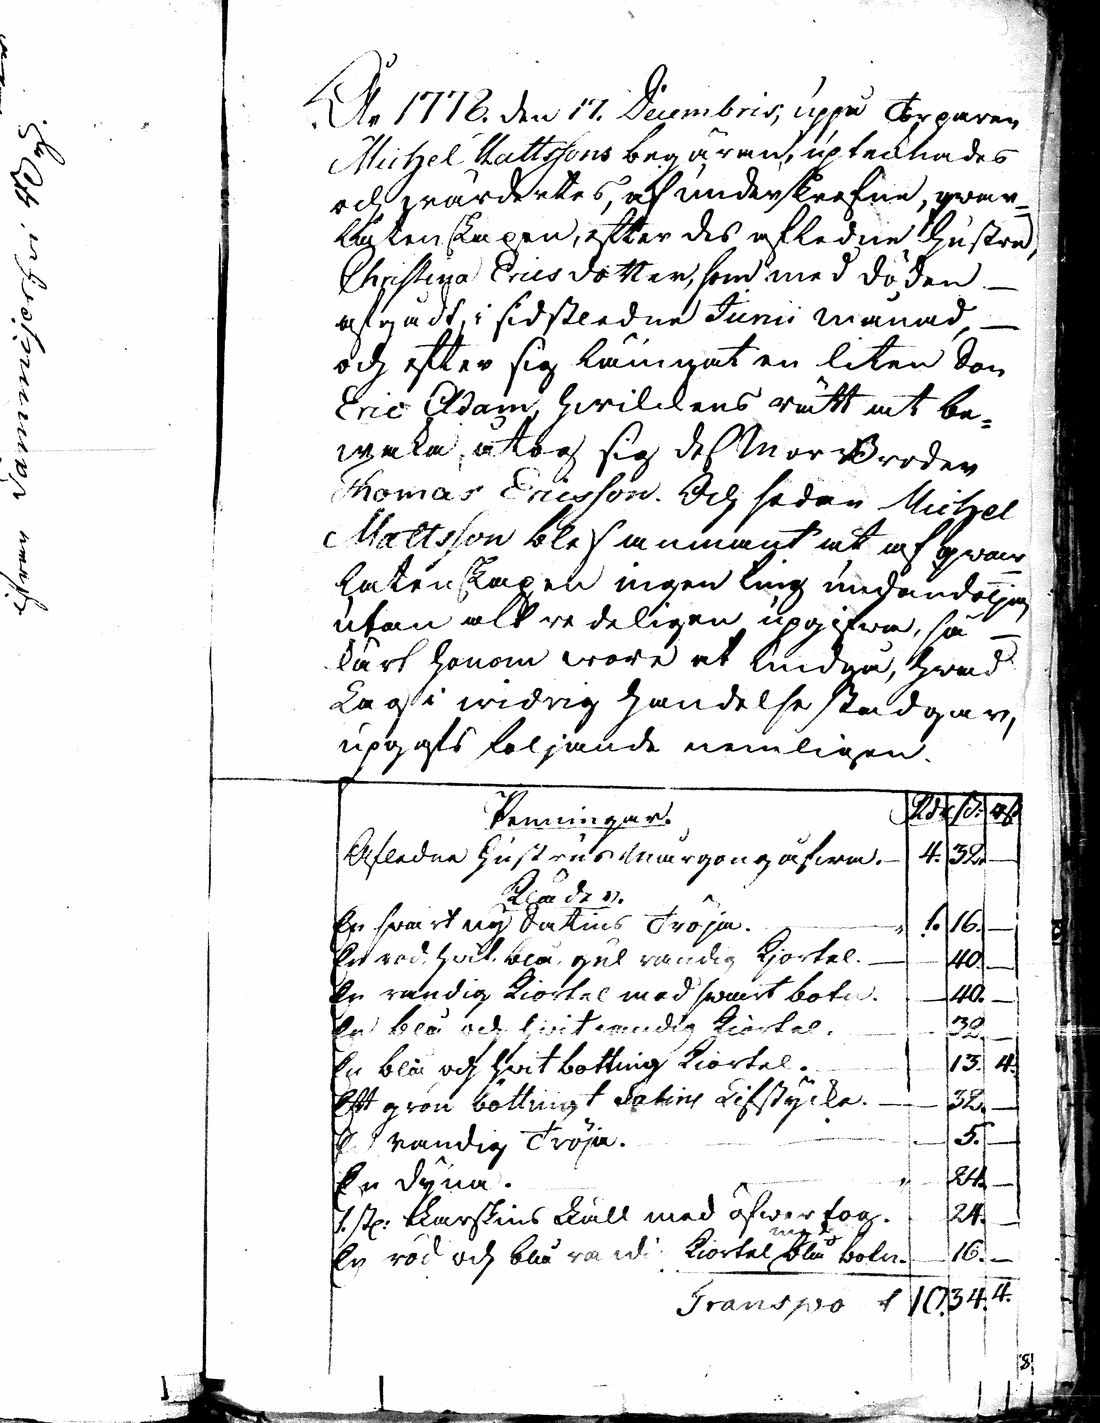 År 1778. den 17. Decembris, uppå Torparen
Michel Mattssons begäran, uptecknades
och wärderttes, af underskrefne, qwar-
låtenskapen, efter des afledne Hustru,
Christina Ericsdotter, som med döden
afgådt, i sidstledne Junii månad,
och efter sig lämnat en liten Son
Eric Adam, hwilckens rätt at be-
waka, åtog sig dess Mor Broder
Thomas Ericsson. Och sedan Michel
Mattsson blef anmant at af qwar
låtenskapen ingen ting undandölja,
utan alt redeligen upgifwa, så
kärt honom wore at undgå, hwad
Lag i widrig händelse stadgar,
upgafs följande nemligen.
Penningar. Rdr ſk: rſt
Afledne Hustrus Morgongåfwa. 4. 32. —
Kläder.
En swart ny Satins Tröja. 1. 16. —
En röd, hvit, blå, gul randig Kjortel. — 40 —
En randig Kiortel med swart botn. — 40. —
En blå och hvit randig Kiortel. — 32 —
En blå och hvit botting Kiortel. 13. 4.
Ett grön bottingt Satins Lifstycke. — 32. —
E randig Tröja. — 5. —
En dyna. 24. —
1. st: Karskins Kull med öfwertog. 24. —
En röd och blå randi Kiortel med blå botn. — 16. —
Transpo t 10. 34. 4.
8